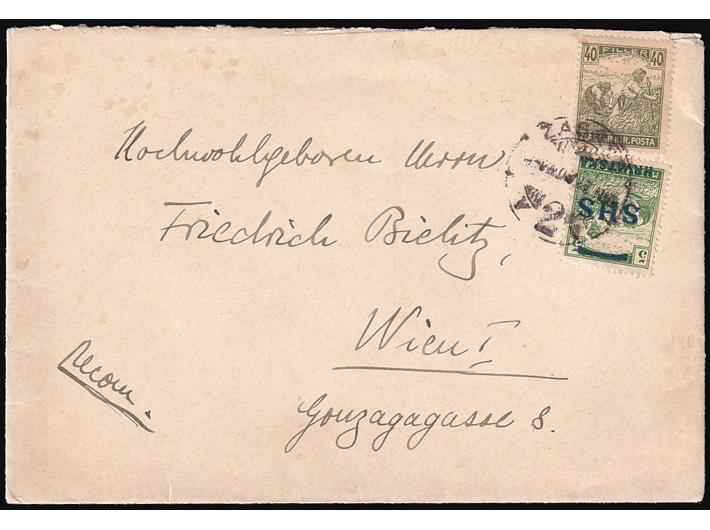 40 FILLÉR 40
MAGYAR KIR. POSTA
ZAGREB
HRVATSKA
SHS
5
Hochwohlgeboren Herrn
Friedrich Bielitz,
Wien I
Recom.
Gonzagagasse 8.